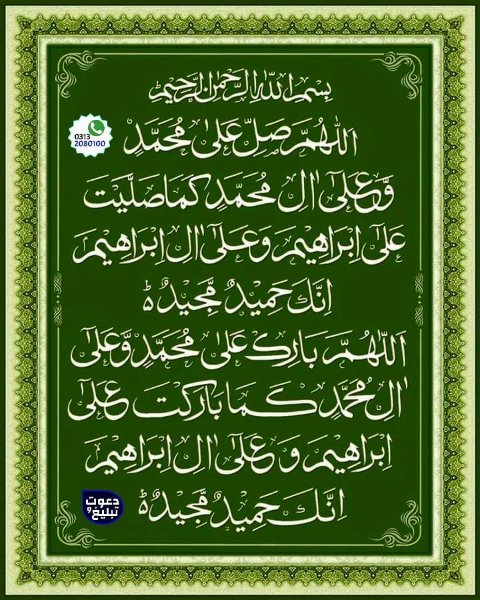 بِسْمِ اللهِ الرَّحْمٰنِ الرَّحِيْمِ
اَللّٰهُمَّ صَلِّ عَلٰى مُحَمَّدٍ
0313
2080100
وَّعَلٰى اٰلِ مُحَمَّدٍ كَمَا صَلَّيْتَ
عَلٰى اِبْرَاهِيْمَ وَعَلٰى اٰلِ اِبْرَاهِيْمَ
اِنَّكَ حَمِيْدٌ مَّجِيْدٌ ؕ
اَللّٰهُمَّ بَارِكْ عَلٰى مُحَمَّدٍ وَّعَلٰى
اٰلِ مُحَمَّدٍ كَمَا بَارَكْتَ عَلٰى
اِبْرَاهِيْمَ وَعَلٰى اٰلِ اِبْرَاهِيْمَ
اِنَّكَ حَمِيْدٌ مَّجِيْدٌ ؕ
دعوت
و تبلیغ